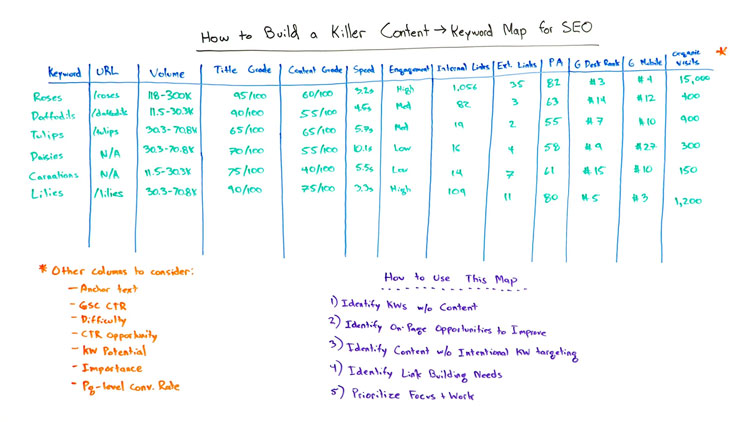 How to Build a Killer Content → Keyword Map for SEO
*
Keyword URL Volume Title Grade Content Grade Speed Engagement Internal Links Ext. Links PA G Desk Rank G Mobile Organic Visits
Roses /roses 118-300K 95/100 60/100 3.2s High 1,056 35 82 #3 #4 15,000
Daffodils /daffodils 11.5-30.3K 90/100 55/100 4.5s Med 82 3 63 #14 #12 400
Tulips /tulips 30.3-70.8K 65/100 65/100 Med 19 2 55 #7 #10 900
Daisies N/A 30.3-70.8K 70/100 55/100 10.1s Low 16 4 58 #9 #27 300
Carnations N/A 11.5-30.3K 75/100 40/100 5.5s Low 14 7 61 #15 #10 150
Lilies /lilies 30.3-70.8K 90/100 75/100 High 109 11 80 #5 #3 1,200
* Other columns to consider:
– Anchor text
– GSC CTR
– Difficulty
– CTR Opportunity
– KW Potential
– Importance
– Pg-level Conv. Rate
How to Use This Map
1) Identify KWs w/o Content
2) Identify On-Page Opportunities to Improve
3) Identify Content w/o Intentional KW targeting
4) Identify Link Building Needs
5) Prioritize Focus + Work